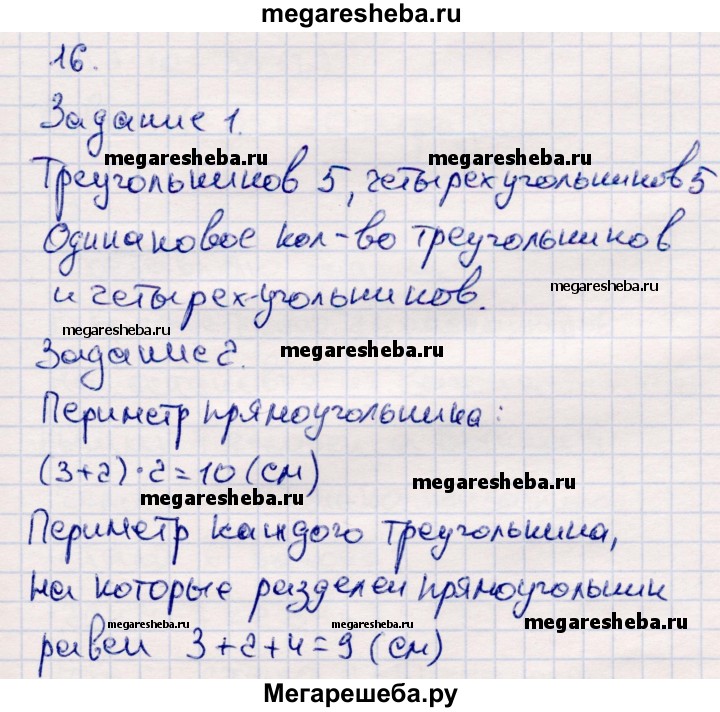 megaresheba.ru
16.
Задание 1.
megaresheba.ru megaresheba.ru
Треугольников 5, четырехугольников 5
Одинаковое кол-во треугольников
megaresheba.ru
и четырех-угольников.
megaresheba.ru
Задание 2. megaresheba.ru
Периметр прямоугольника:
(3+2)·2=10 (см) megaresheba.ru
megaresheba.ru
Периметр каждого треугольника,
на которые разделен прямоугольник
megaresheba.ru megaresheba.ru megaresheba.ru
равен 3+2+4=9 (см)
Мегарешеба.ру